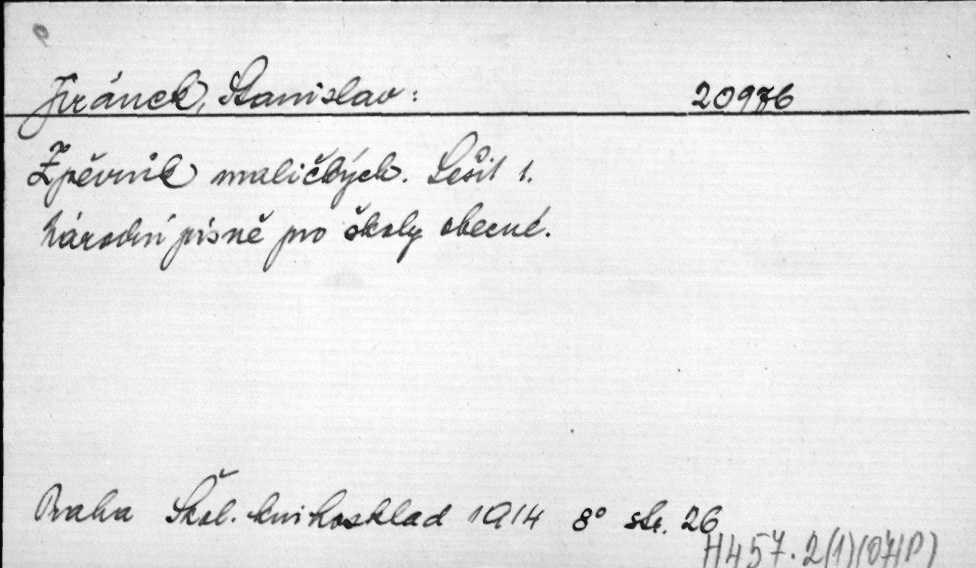 Jiránek, Stanislav: 20976
Zpěvník maličkých. Sešit 1.
Národní písně pro školy obecné.
Praha Škol. knihosklad 1914 8° str. 26
H457.2(1)(07)(P)